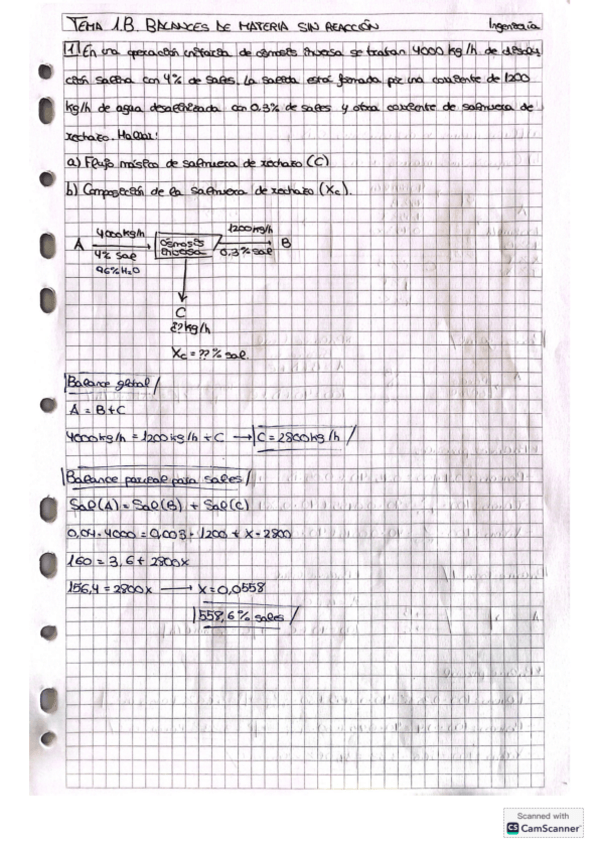 TEMA 1.B. BALANCES DE MATERIA SIN REACCIÓN Ingeniería
1 En una operación unitaria de ósmosis inversa se tratan 4000 kg/h de disolu
ción salina con 4% de sales. La salida está formada por una corriente de 1200
kg/h de agua desalinizada con 0,3% de sales y otra corriente de salmuera de
rechazo. Hallar:
a) Flujo másico de salmuera de rechazo (C)
b) Composición de la salmuera de rechazo (Xc).
4000kg/h 1200kg/h
A ósmosis inversa B
4% sal 0.3% sal
96% H2O
C
¿?kg/h
Xc = ??% sal.
Balance global
A = B+C
4000kg/h = 1200kg/h + C → C = 2800kg/h
Balance parcial para sales
Sal(A) = Sal(B) + Sal(C)
0,04·4000 = 0,003·1200 + X·2800
160 = 3,6 + 2800x
156,4 = 2800x → X = 0,0558
558,6% sales
Scanned with
CS CamScanner